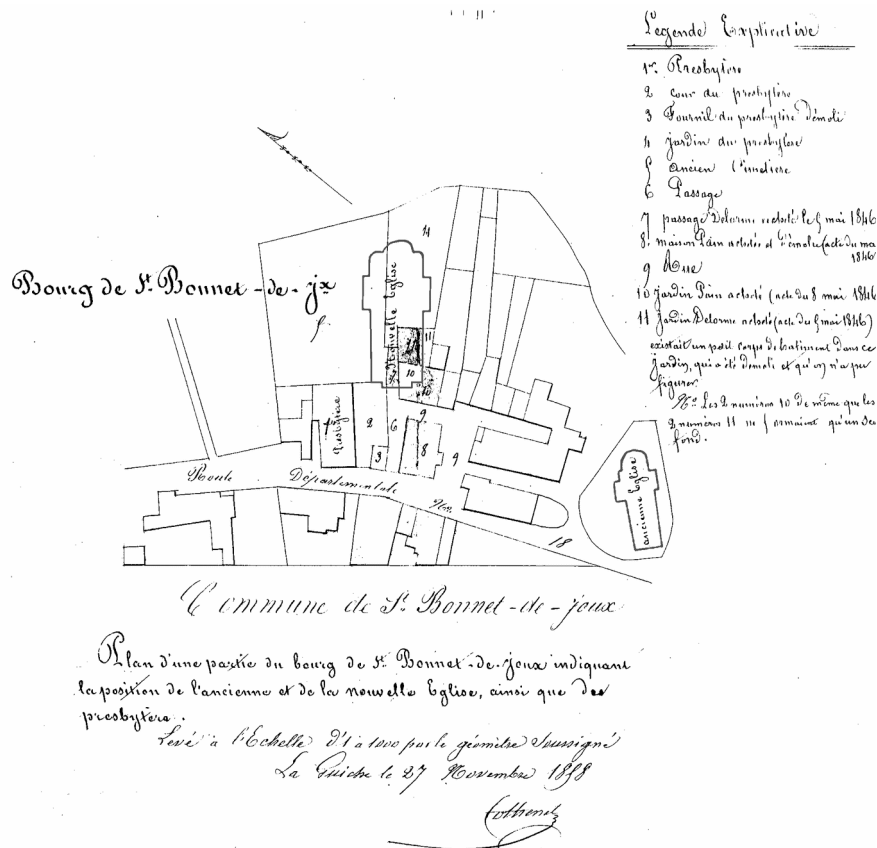 Légende Explicative
1er. Presbytère
2 cour du presbytère
3 Fournil du presbytère démoli
4 jardin du presbytère
5 ancien Cimetière
6 Passage
7 passage Delorme acheté le 5 mai 1846
8. maison Pain achetée et démolie (acte du mai
1846
9 Rue
10 jardin Pain acheté (acte du 8 mai 1846
11 jardin Delorme acheté (acte du 5 mai 1846)
existait un petit corps de batiment dans ce
jardin, qui a été démoli et qu'on n'a pu
figurer.
Nta Les 2 numéros 10 de même que les
2 numéros 11 ne formaient qu'un seul
fond.
Bourg de St. Bonnet-de-jx
14
5
Nouvelle Eglise
11
10
10
9
1
Presbytère
2
6
3
8
9
Route Départementale No.
18
ancienne Eglise
Commune de St. Bonnet-de-joux
Plan d'une partie du bourg de St. Bonnet-de-joux indiquant
la position de l'ancienne et de la nouvelle Eglise, ainsi que des
presbytère.
Levé à l'Echelle d'1 à 1000 par le géomètre Soussigné
La Guiche le 27 Novembre 1858